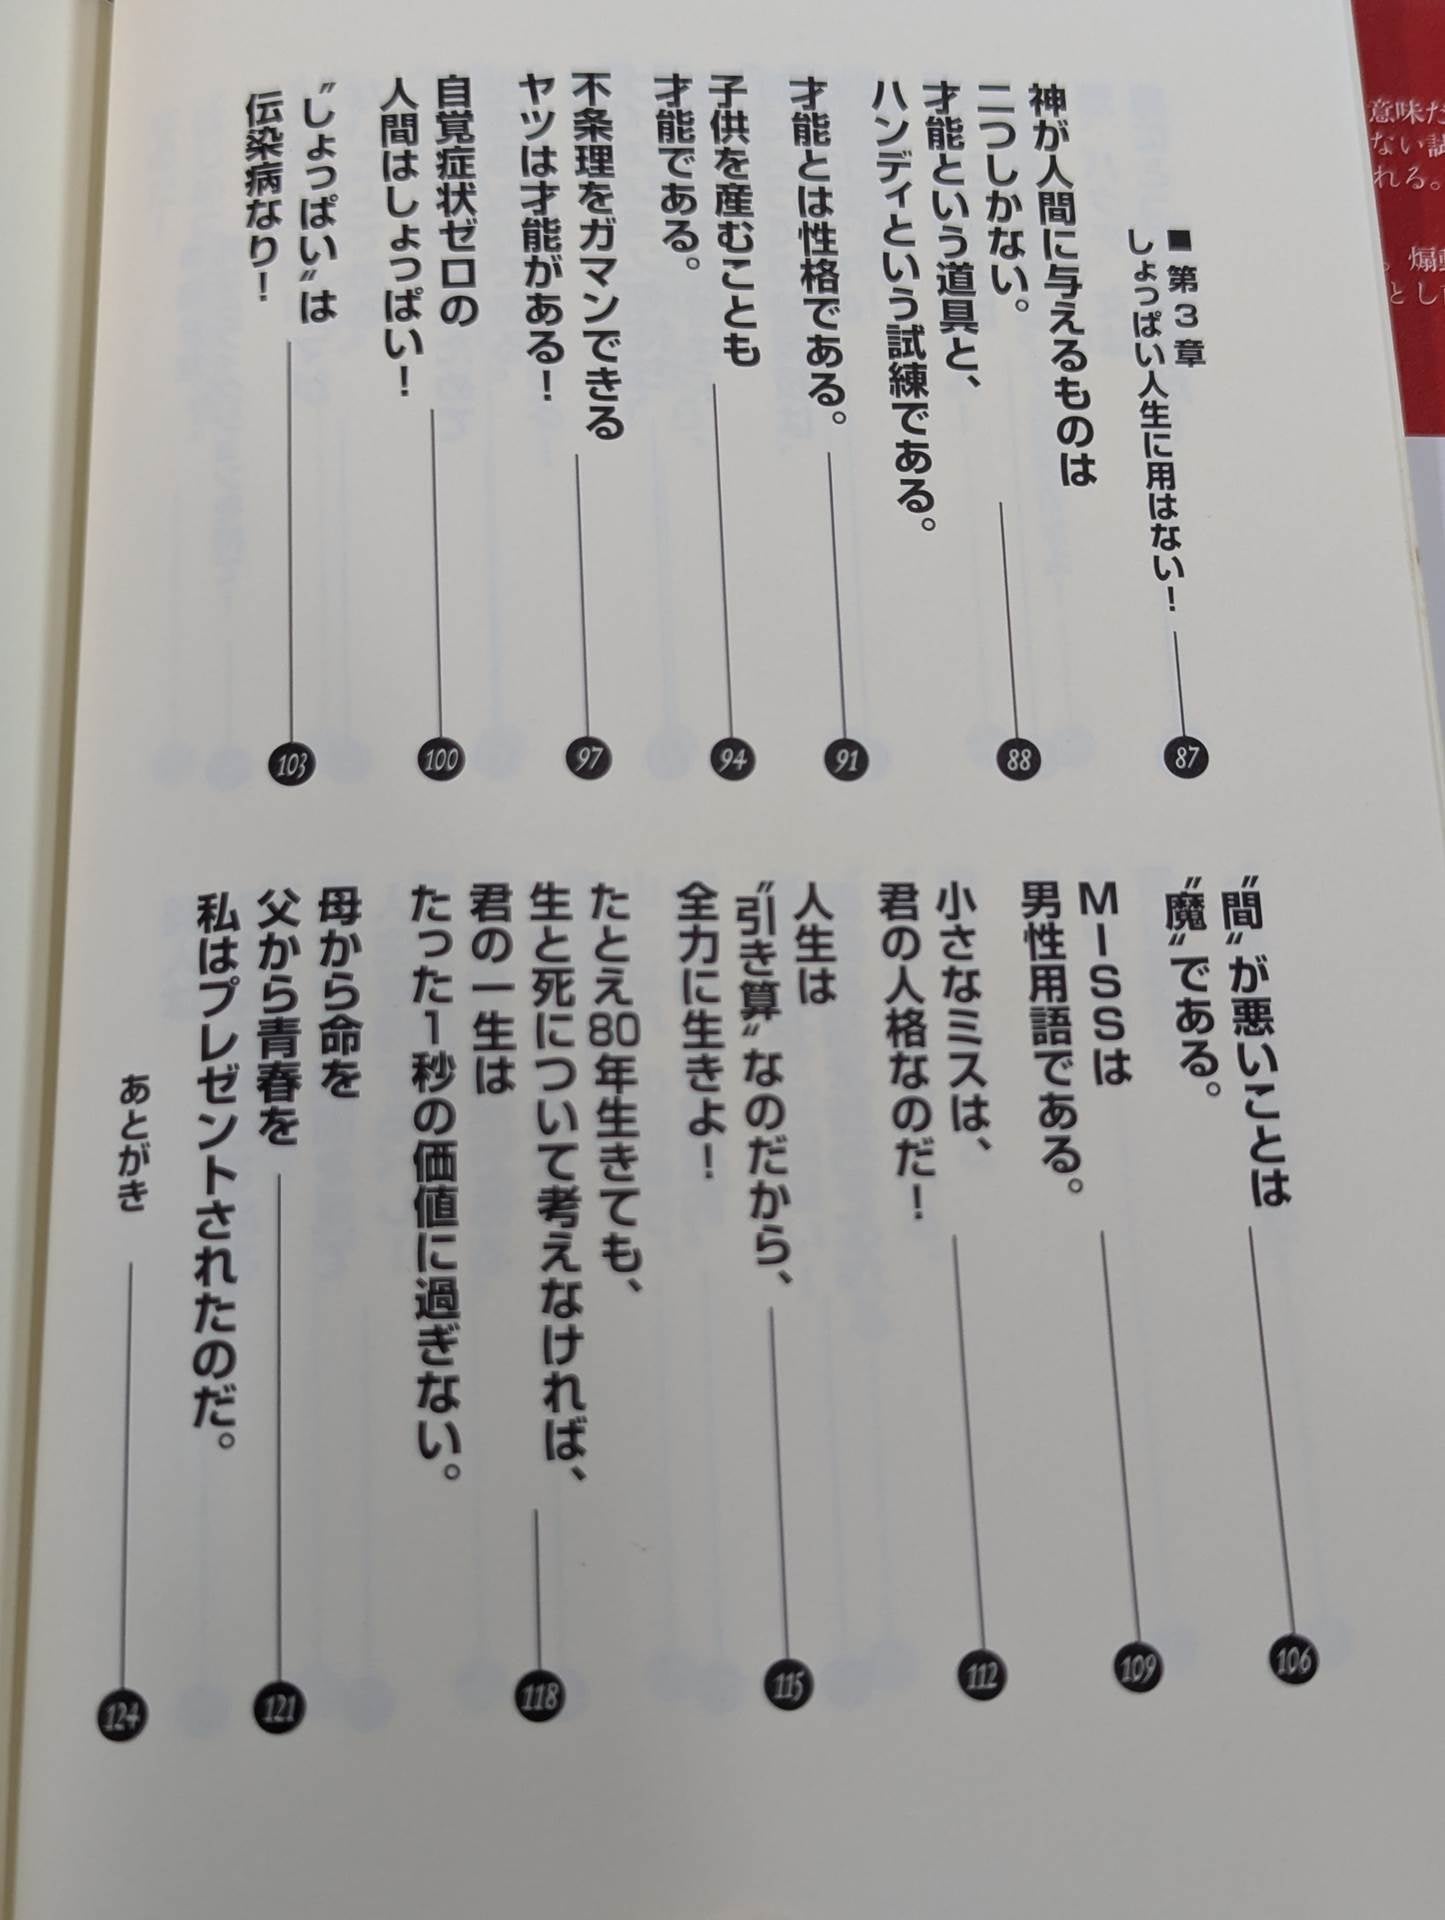 ■第3章
しょっぱい人生に用はない！
87
神が人間に与えるものは
二つしかない。
才能という道具と、
ハンディという試練である。
88
才能とは性格である。
91
子供を産むことも
才能である。
94
不条理をガマンできる
ヤツは才能がある！
97
自覚症状ゼロの
人間はしょっぱい！
100
〝しょっぱい〟は
伝染病なり！
103
〝間〟が悪いことは
〝魔〟である。
106
MISSは
男性用語である。
109
小さなミスは、
君の人格なのだ！
112
人生は
〝引き算〟なのだから、
全力に生きよ！
115
たとえ80年生きても、
生と死について考えなければ、
君の一生は
たった1秒の価値に過ぎない。
118
母から命を
父から青春を
私はプレゼントされたのだ。
121
あとがき
124
意味だ
ない試
れる。
。煽動
とし